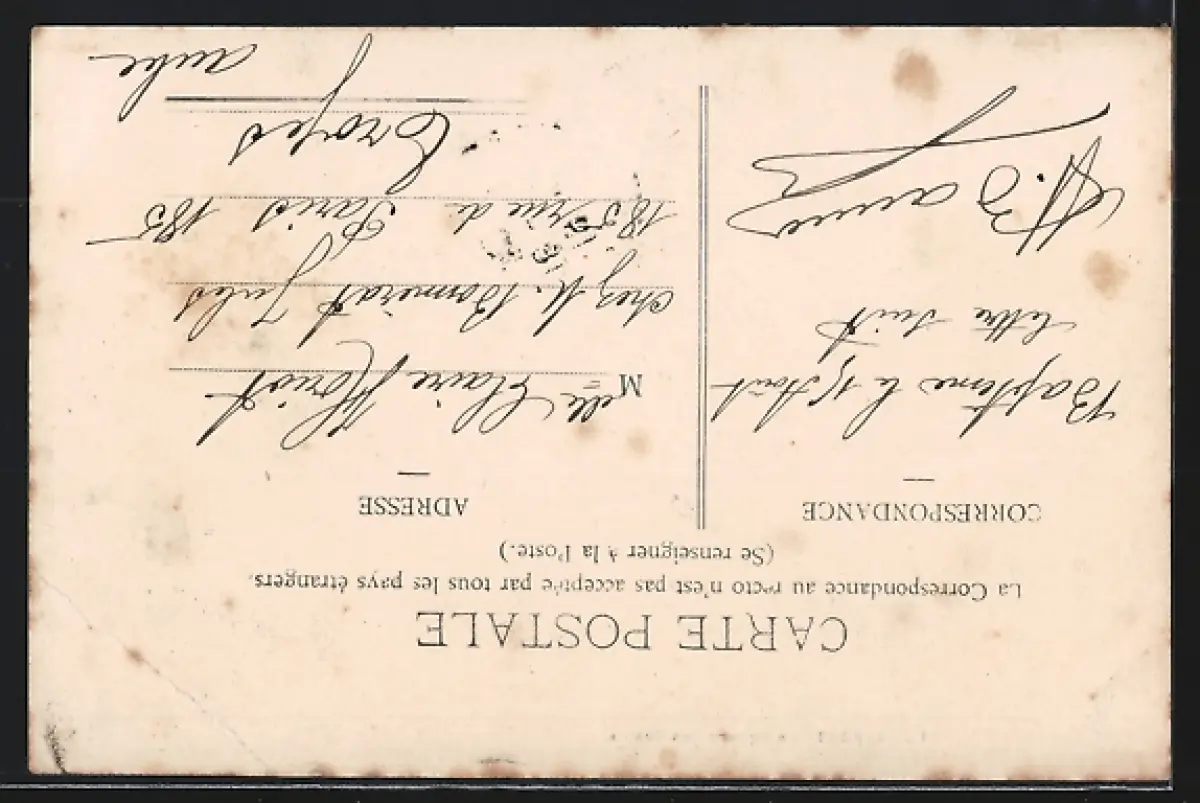 CARTE POSTALE
La Correspondance au recto n'est pas acceptée par tous les pays étrangers.
(Se renseigner à la Poste.)
CORRESPONDANCE
Baptême le 15 Août
lettre suit
ADRESSE
Melle Claire
chez M. Bonnerat Jules
185 rue de Paris 185
Troyes
aube